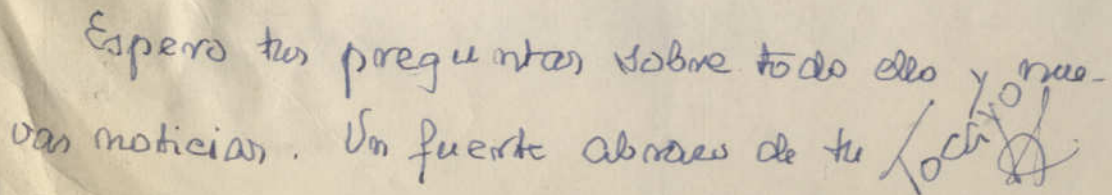 Espero tus preguntas sobre todo ello y nue-
vas noticias. Un fuerte abrazo de tu